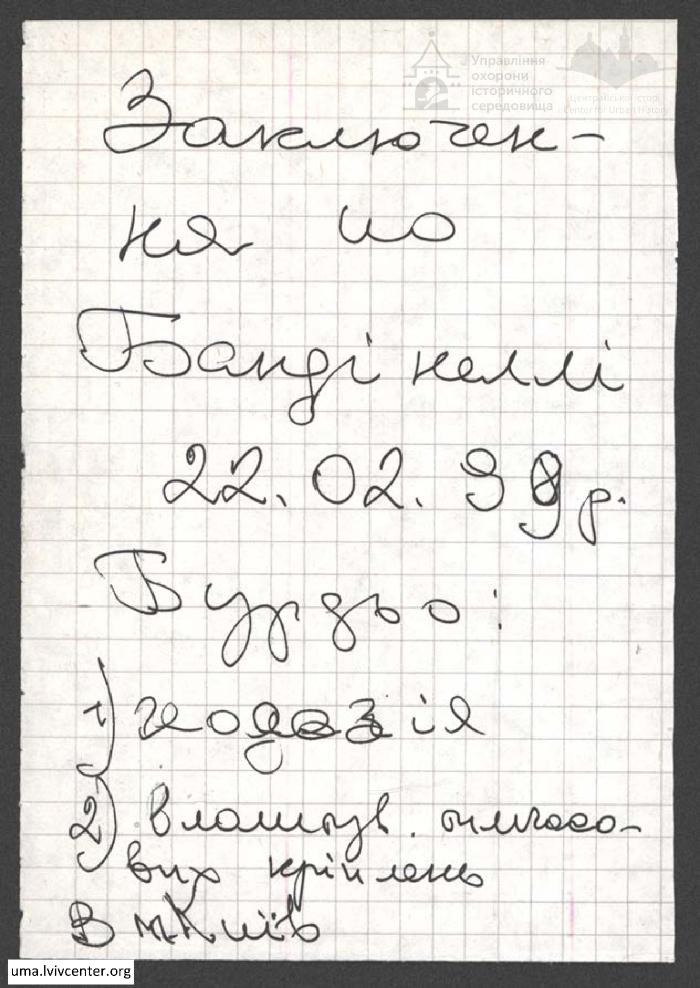 Управління
охорони
історичного
середовища
Center for Urban History
Заключен-
ня по
Бандінеллі
22.02.99р.
Бурдьо:
1) геодезія
2) влаштув. тимчасо-
вих кріплень
В м. Київ
uma.lvivcenter.org